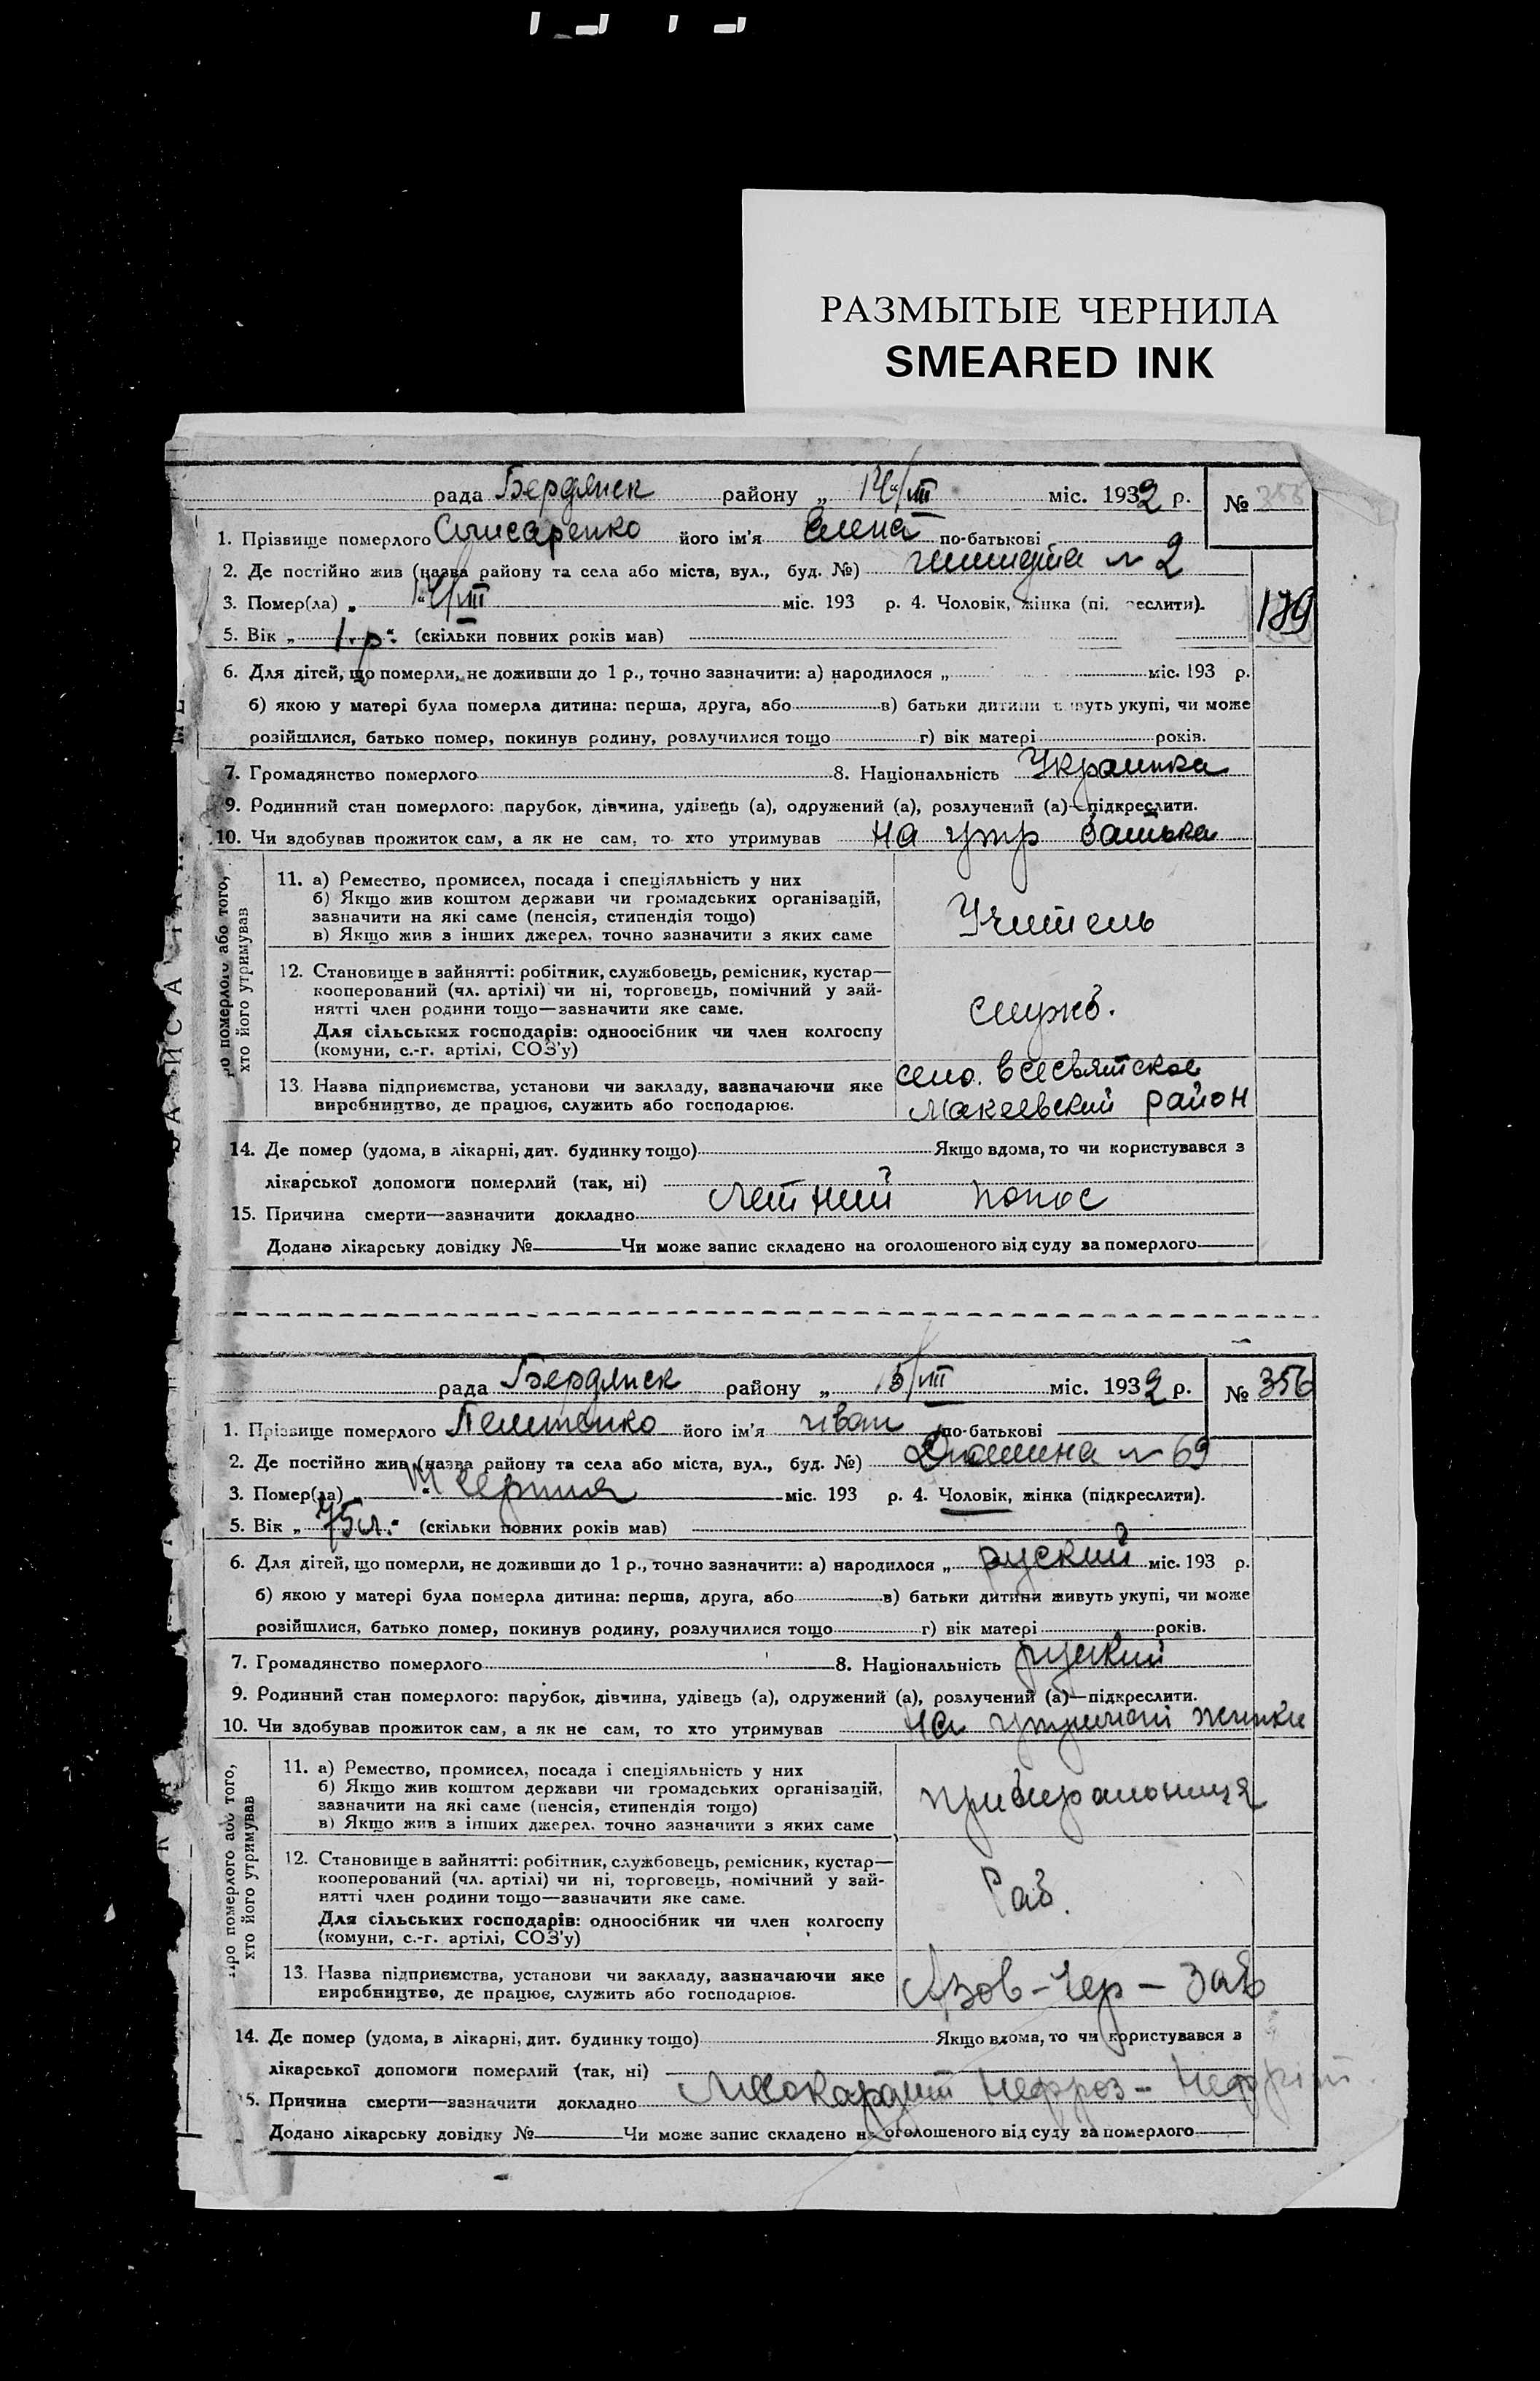 РАЗМЫТЫЕ ЧЕРНИЛА
SMEARED INK
рада Бердянск району „ 14/VIII міс. 1932 р. № 355
1. Прізвище померлого Слисаренко його ім'я Елена по-батькові
2. Де постійно жив (назва району та села або міста, вул., буд. №) № 2
3. Помер(ла) „ 14/VIII міс. 193 р. 4. Чоловік, жінка
179
5. Вік „ 1.р." (скільки повних років мав)
6. Для дітей, що померли, не доживши до 1 р., точно зазначити: а) народилося „ міс. 193 р.
б) якою у матері була померла дитина: перша, друга, або в) батьки дитини живуть укупі, чи може
розійшлися, батько помер, покинув родину, розлучилися тощо г) вік матері років.
7. Громадянство померлого 8. Національність Украинка
9. Родинний стан померлого: парубок, дівчина, удівець (а), одружений (а), розлучений (а)—підкреслити.
10. Чи здобував прожиток сам, а як не сам, то хто утримував на утр батька
хто його утримував
11. а) Ремество, промисел, посада і спеціяльність у них
б) Якщо жив коштом держави чи громадських організацій,
зазначити на які саме (пенсія, стипендія тощо)
в) Якщо жив з інших джерел, точно зазначити з яких саме
Учитель
12. Становище в зайнятті: робітник, службовець, ремісник, кустар—
кооперований (чл. артілі) чи ні, торговець, помічний у зай-
нятті член родини тощо—зазначити яке саме.
Для сільських господарів: одноосібник чи член колгоспу
(комуни, с.-г. артілі, СОЗ'у)
служб.
13. Назва підприємства, установи чи закладу, зазначаючи яке
виробництво, де працює, служить або господарює.
село. Всесвятское
Макеевский район
14. Де помер (удома, в лікарні, дит. будинку тощо) Якщо вдома, то чи користувався з
лікарської допомоги померлий (так, ні)
15. Причина смерти—зазначити докладно Летний понос
Додано лікарську довідку № Чи може запис складено на оголошеного від суду за померлого
рада Бердянск району „ 15/VIII міс. 1932 р. № 356
1. Прізвище померлого його ім'я Иван по-батькові
2. Де постійно жив (назва району та села або міста, вул., буд. №) № 69
3. Помер(ла) „ 14 серпня міс. 193 р. 4. Чоловік, жінка (підкреслити).
5. Вік „ 75 л." (скільки повних років мав)
6. Для дітей, що померли, не доживши до 1 р., точно зазначити: а) народилося „ руский міс. 193 р.
б) якою у матері була померла дитина: перша, друга, або в) батьки дитини живуть укупі, чи може
розійшлися, батько помер, покинув родину, розлучилися тощо г) вік матері років.
7. Громадянство померлого 8. Національність руский
9. Родинний стан померлого: парубок, дівчина, удівець (а), одружений (а), розлучений (а)—підкреслити.
10. Чи здобував прожиток сам, а як не сам, то хто утримував на утриманні жинки
Про померлого або того,
хто його утримував
11. а) Ремество, промисел, посада і спеціяльність у них
б) Якщо жив коштом держави чи громадських організацій,
зазначити на які саме (пенсія, стипендія тощо)
в) Якщо жив з інших джерел, точно зазначити з яких саме
прибиральниця
12. Становище в зайнятті: робітник, службовець, ремісник, кустар—
кооперований (чл. артілі) чи ні, торговець, помічний у зай-
нятті член родини тощо—зазначити яке саме.
Для сільських господарів: одноосібник чи член колгоспу
(комуни, с.-г. артілі, СОЗ'у)
Раб.
13. Назва підприємства, установи чи закладу, зазначаючи яке
виробництво, де працює, служить або господарює.
Азов-Чер-Зав
14. Де помер (удома, в лікарні, дит. будинку тощо) Якщо вдома, то чи користувався з
лікарської допомоги померлий (так, ні)
15. Причина смерти—зазначити докладно Миокардит Нефроз-Нефрит
Додано лікарську довідку № Чи може запис складено на оголошеного від суду за померлого